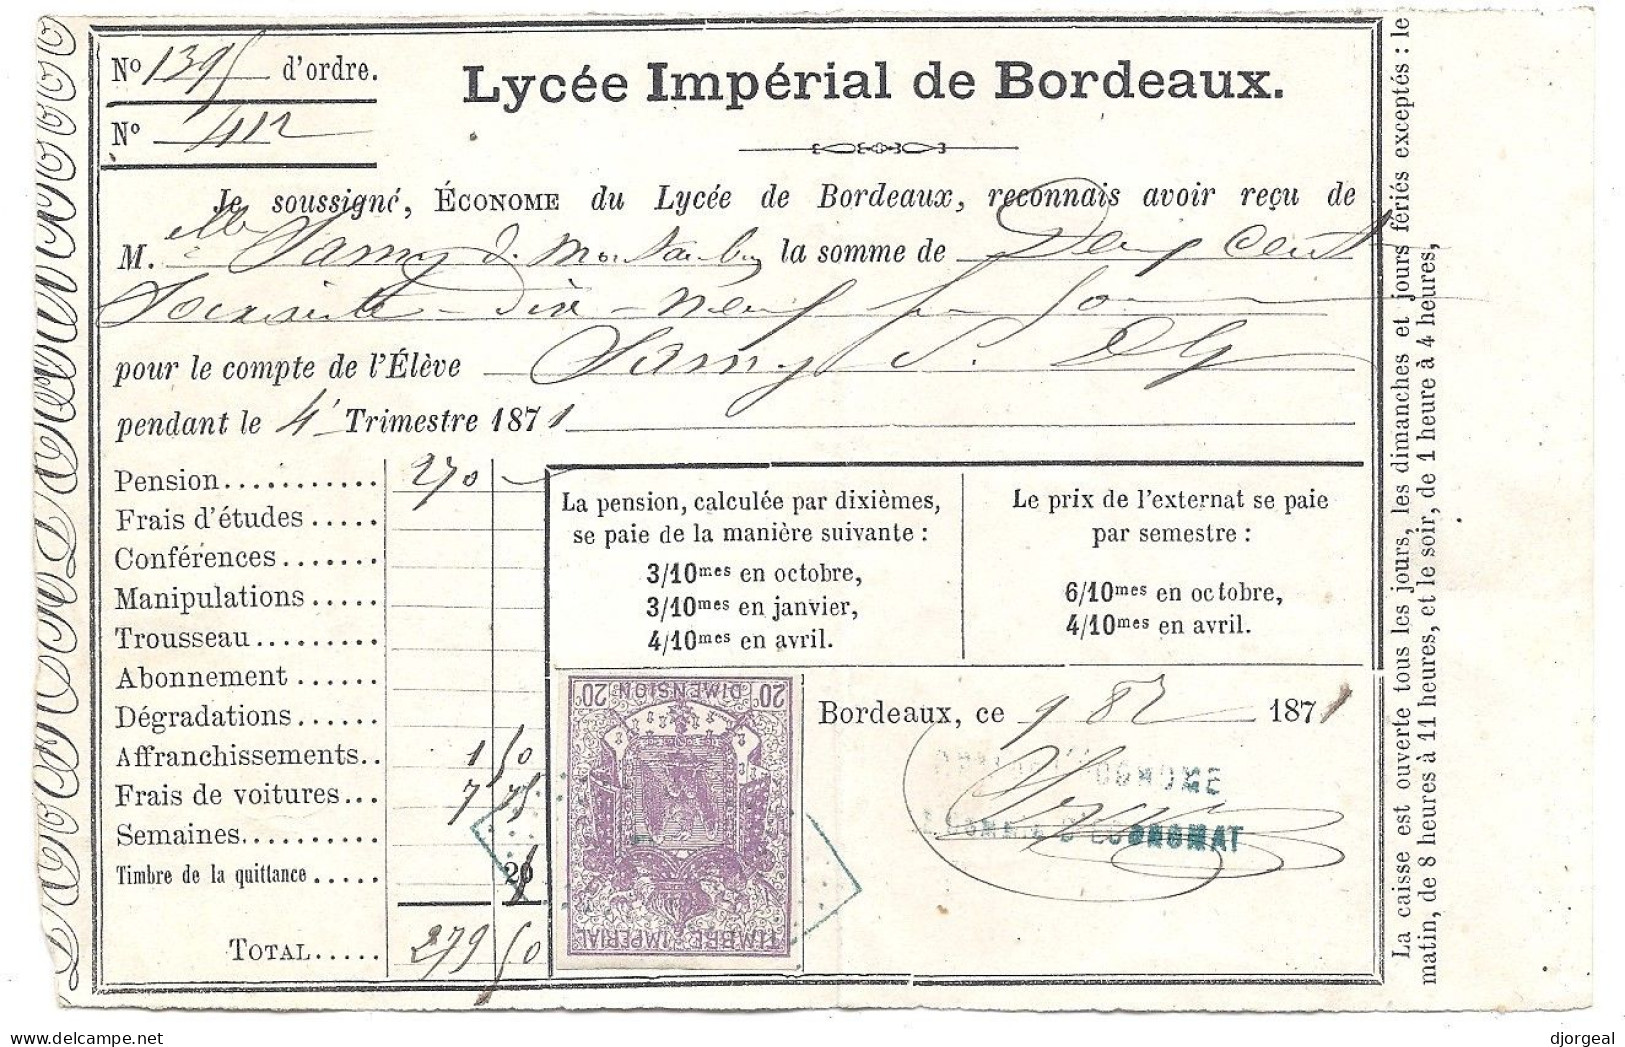 No 1395 d'ordre.
Lycée Impérial de Bordeaux.
No 412
Je soussigné, ÉCONOME du Lycée de Bordeaux, reconnais avoir reçu de
M.elle Samy de Montauban la somme de Deux Cent
Soixante-dix-neuf
pour le compte de l'Élève Samy
pendant le 4e Trimestre 1871
Pension........... 270
Frais d'études.....
Conférences.......
Manipulations.....
Trousseau.........
Abonnement......
Dégradations......
Affranchissements.. 1 50
Frais de voitures... 7 75
Semaines..........
Timbre de la quittance..... 25
TOTAL..... 279 50
La pension, calculée par dixièmes,
se paie de la manière suivante :
3/10mes en octobre,
3/10mes en janvier,
4/10mes en avril.
Le prix de l'externat se paie
par semestre :
6/10mes en octobre,
4/10mes en avril.
20c 20c
DIMENSION
TIMBRE IMPÉRIAL
Bordeaux, ce 9 8bre 1871
La caisse est ouverte tous les jours, les dimanches et jours fériés exceptés : le
matin, de 8 heures à 11 heures, et le soir, de 1 heure à 4 heures,
djorgeal